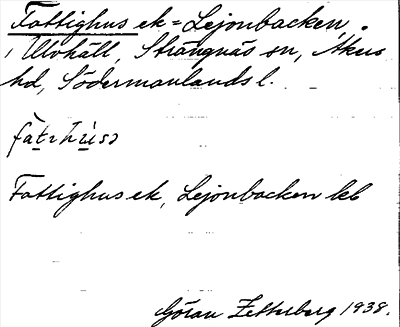 Fattighus ek = Lejonbacken,
i Ulvhäll, Strängnäs sn, Åkers
hd, Södermanlands l.
Fattighus ek, Lejonbacken kb
Göran Zetterberg 1938.